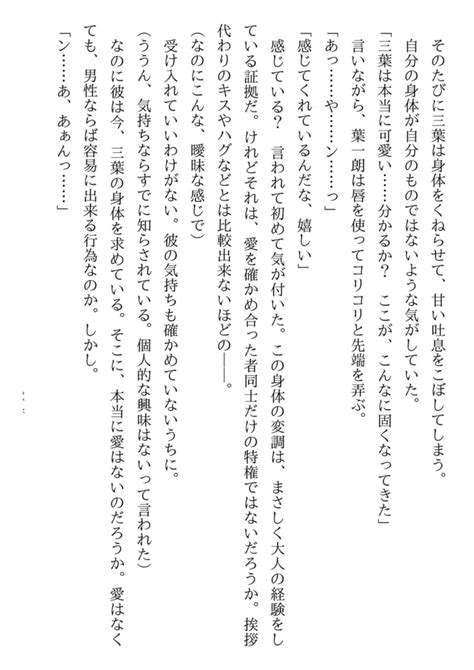 そのたびに三葉は身体をくねらせて、甘い吐息をこぼしてしまう。
自分の身体が自分のものではないような気がしていた。
「三葉は本当に可愛い……分かるか？　ここが、こんなに固くなってきた」
言いながら、葉一朗は唇を使ってコリコリと先端を弄ぶ。
「あっ……や……ンっ」
「感じてくれているんだな、嬉しい」
感じている？　言われて初めて気が付いた。この身体の変調は、まさしく大人の経験をし
ている証拠だ。けれどそれは、愛を確かめ合った者同士だけの特権ではないだろうか。挨拶
代わりのキスやハグなどとは比較出来ないほどの――。
（なのにこんな、曖昧な感じで）
受け入れていいわけがない。彼の気持ちも確かめていないうちに。
（ううん、気持ちならすでに知らされている。個人的な興味はないって言われた）
なのに彼は今、三葉の身体を求めている。そこに、本当に愛はないのだろうか。愛はなく
ても、男性ならば容易に出来る行為なのか。しかし。
「ン……あ、あぁんっ……」